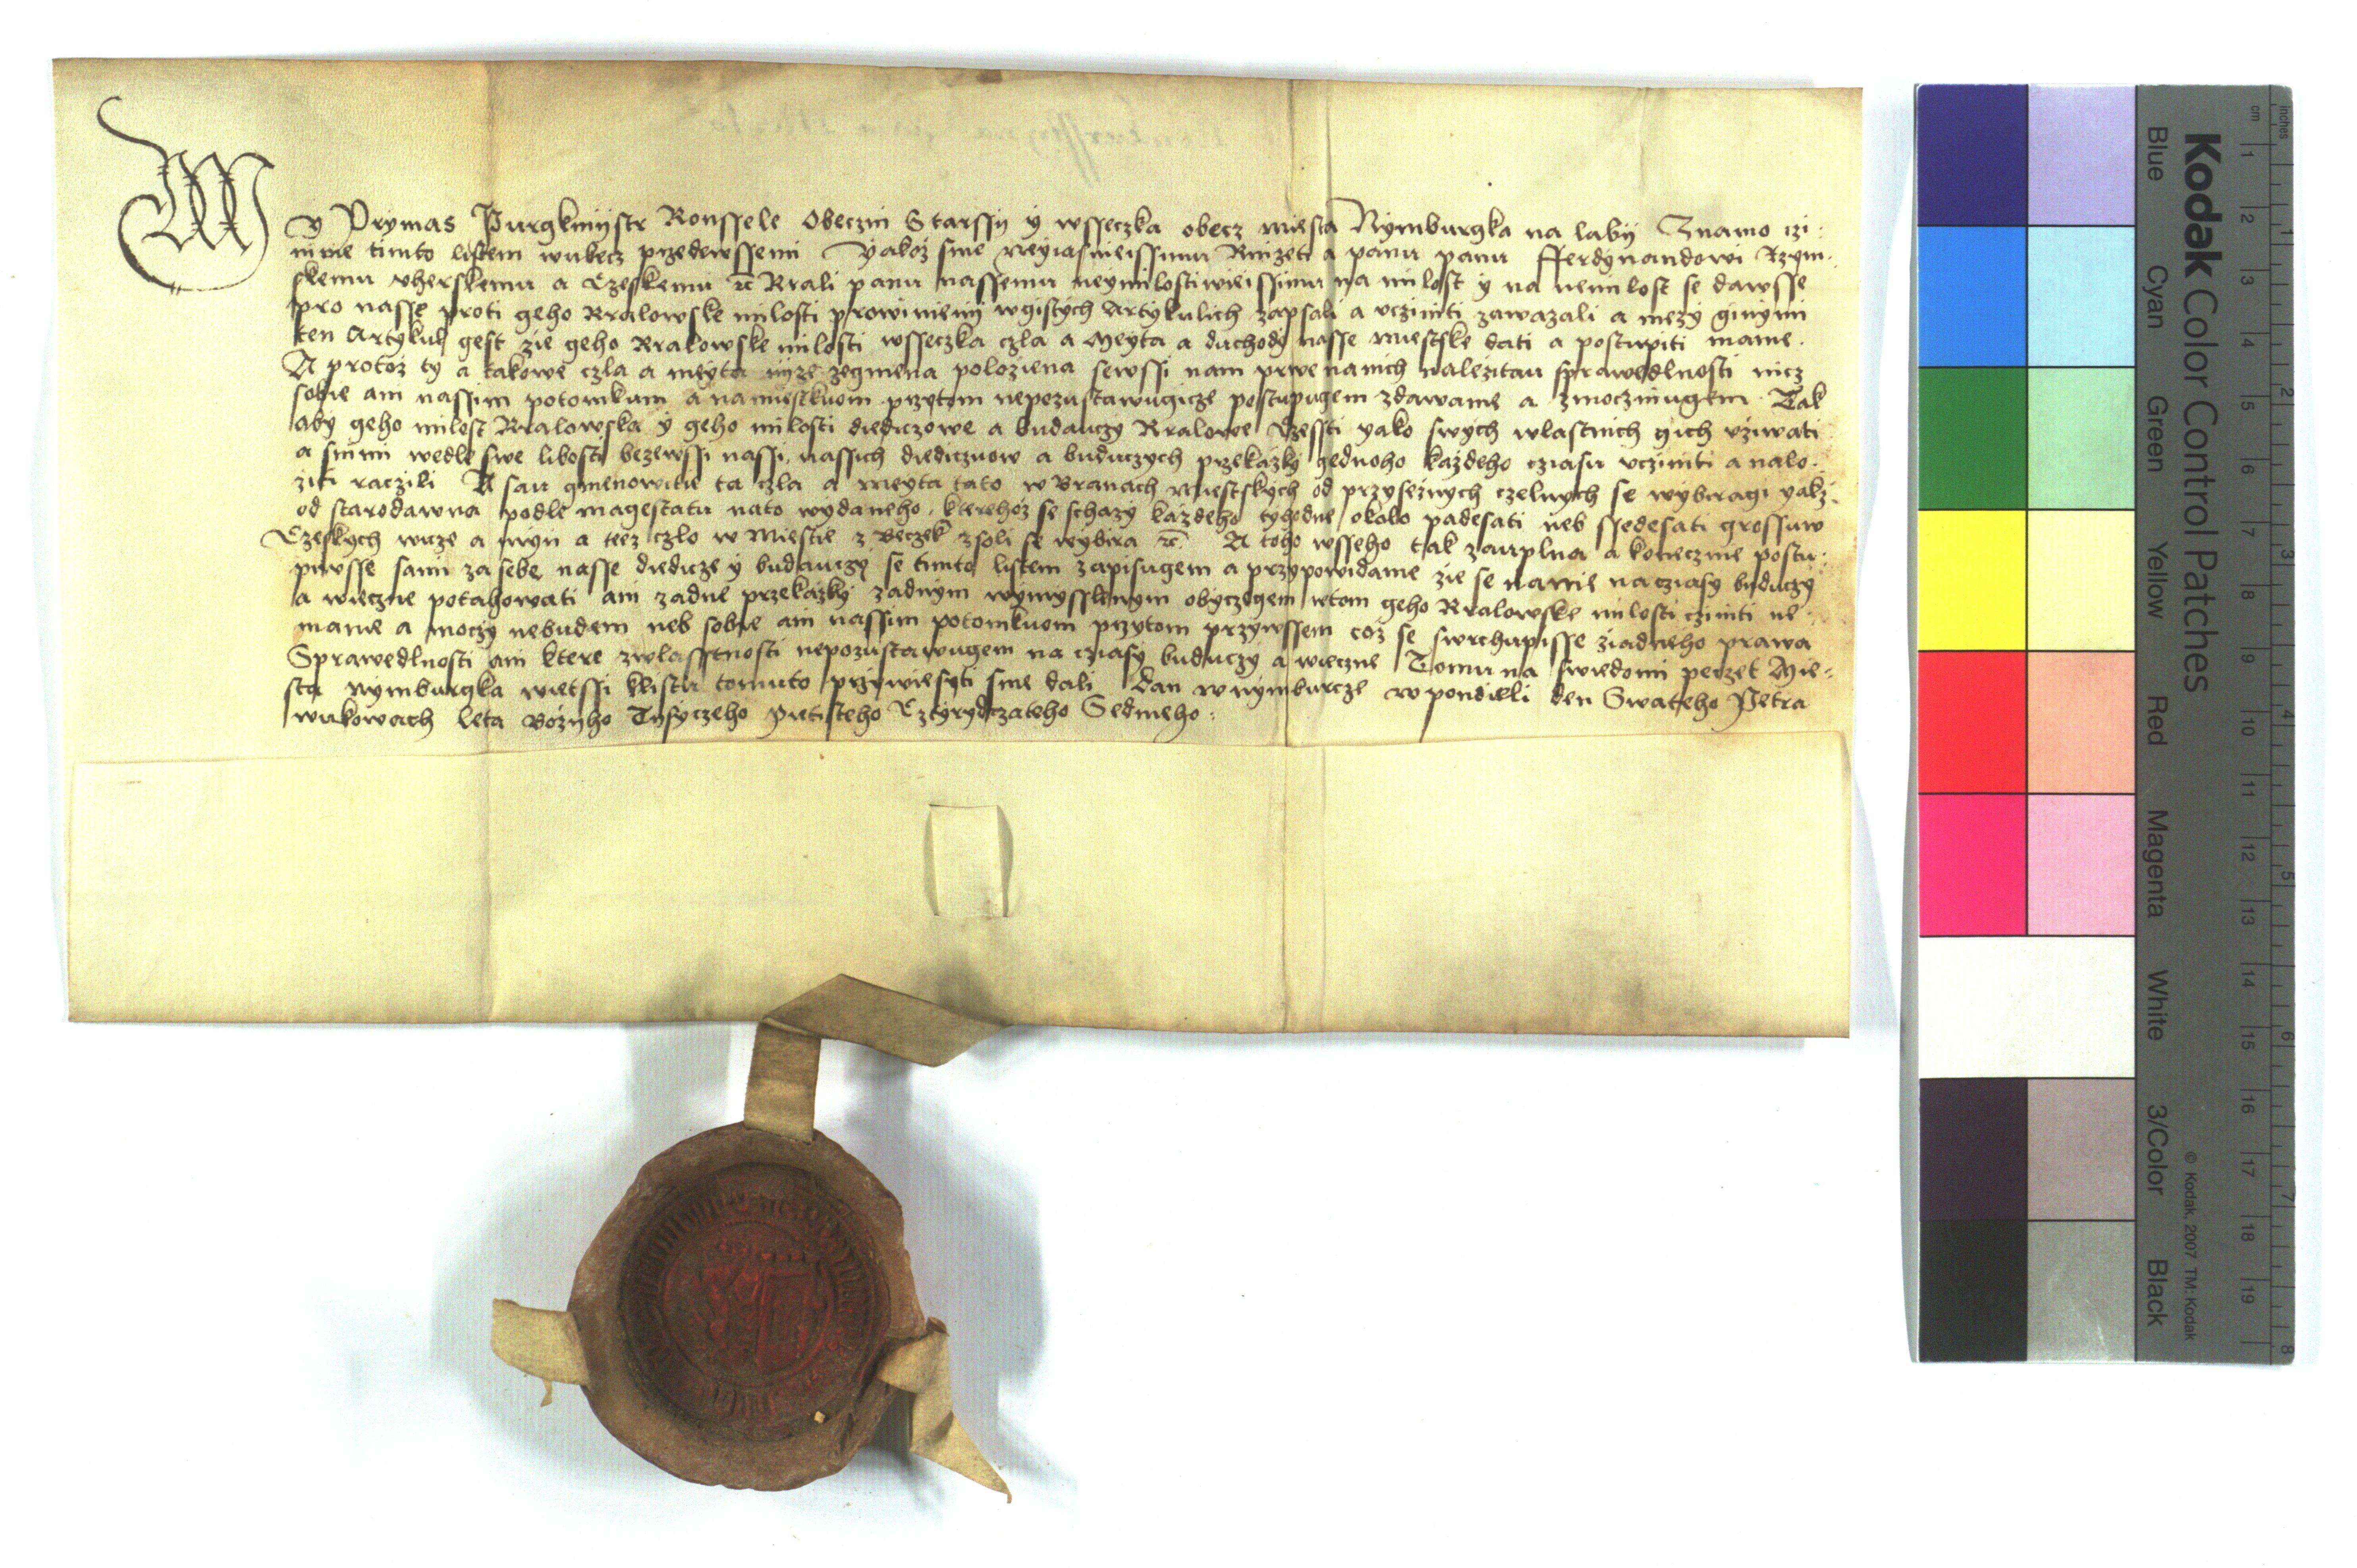 My Prymas Purgkmijstr Konssele Obeczni Starssij y wsseczka obecz miesta Nymburgka na labij Znamo czi:
nime timto listem wubecz przedewssemi Yakoz sme neyiasnieissimu Knizeti a panu panu Fferdynandowi Rzym:
skemu vherskemu a Czeskemu ꝛc̄ Krali panu nassemu neymilostiwieissimu na milost y na nemilost se dawsse
pro nasse proti geho Kralowske milosti prowinienij wgistych Artykulich zapsali a vcziniti zawazali a mezy ginymi
ten Artykul gest zie geho Kralowske milosti wsseczka czla a Meyta a duchody nasse miestske dati a postupiti mame.
A protoz ty a takowe czla a meyta nyze zegmena poloziena sewssi nam prwe nanich nalezitau sprawedlnosti nicz
sobie ani nassim potomkum a namiestkuom przytom nepozustawugicze postupugem zdawame a zmoczniugem. Tak
aby geho milost Kralowska y geho milosti diediczowe a budauczy Kralowe Czessti yako swych wlastnich gich vziwati
a snimi wedle swe libosti bezewssi nassi, nassich diediczuow a buduczych przekazky gednoho kazdeho cziasu vcziniti a nalo:
ziti raczili A sau gmenowitie ta czla a meyta tato wBranach Miestskych od przyseznych czelnych se wybiragi yakz
od starodawna podle magestatu nato wydaneho, kterehoz se schazy kazdeho tyhodne okolo padesati neb ssedesati grossuw
Czeskych wicze a myn a tez czlo w Miestie z Beczek zsoli se wybira ꝛc̄ A toho wsseho tak zauplna a koneczne postu:
piwsse sami zasebe nasse diedicze y budauczy se timto listem zapisugem a przypowidame zie se nanie na cziasy buduczy
a wieczne potahowati ani zadne przekazky zadnym wymysslenym obyczegem wtom geho Kralowske milosti cziniti ne:
mame a moczy nebudem neb sobie ani nassim potomkuom przytom przywssem coz se swrchupisse ziadneho prawa
Sprawedlnosti ani ktere zwlasstnosti nepozustawugem na cziasy buduczy a wieczne Tomu na swiedomi peczet Mie:
sta Nymburgka wietssi klistu tomuto przywiesyti sme dali Dan wnymburcze wpondieli den Swateho Petra
wukowach leta Bozyho Tisyczeho Pietisteho Cztyrydczateho Sedmeho:
Kodak Color Control Patches
Blue Cyan Green Yellow Red Magenta White 3/Color Black
© Kodak, 2007 TM: Kodak
inches 1 2 3 4 5 6 7 8
cm 1 2 3 4 5 6 7 8 9 10 11 12 13 14 15 16 17 18 19